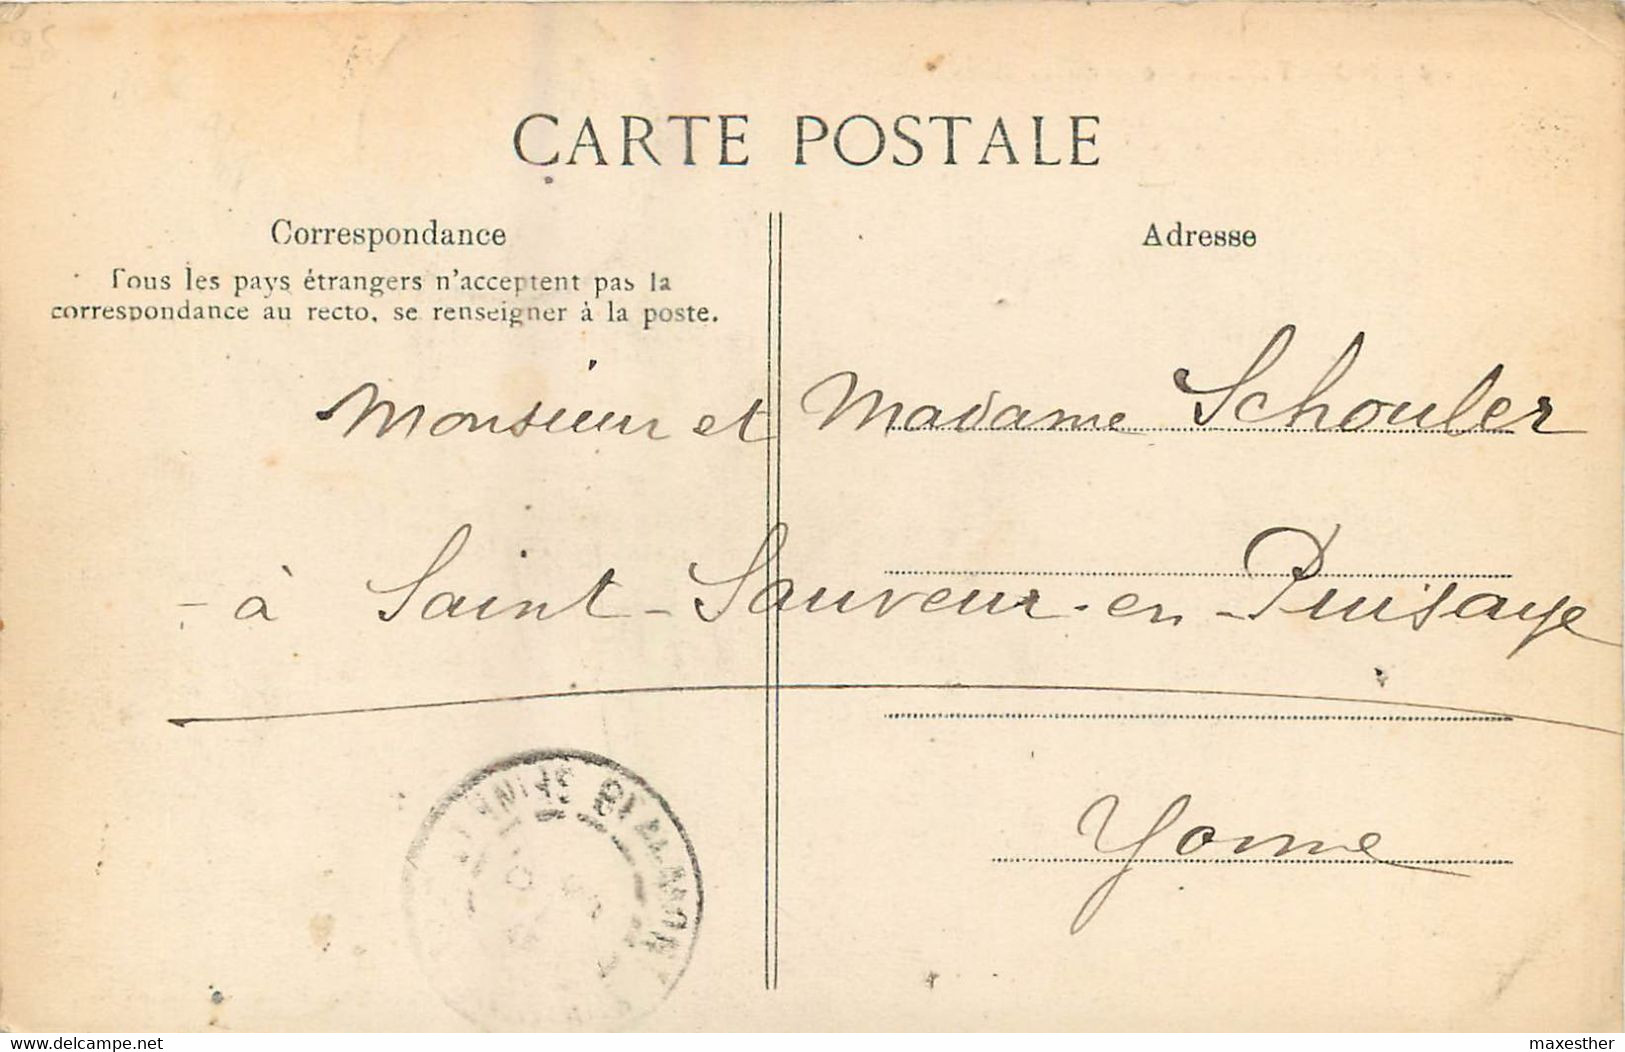 CARTE POSTALE
Correspondance
Tous les pays étrangers n'acceptent pas la
correspondance au recto, se renseigner à la poste.
Adresse
Monsieur et Madame Schouler
- à Saint-Sauveur-en-Puisaye
Yonne
delcampe.net
maxesther